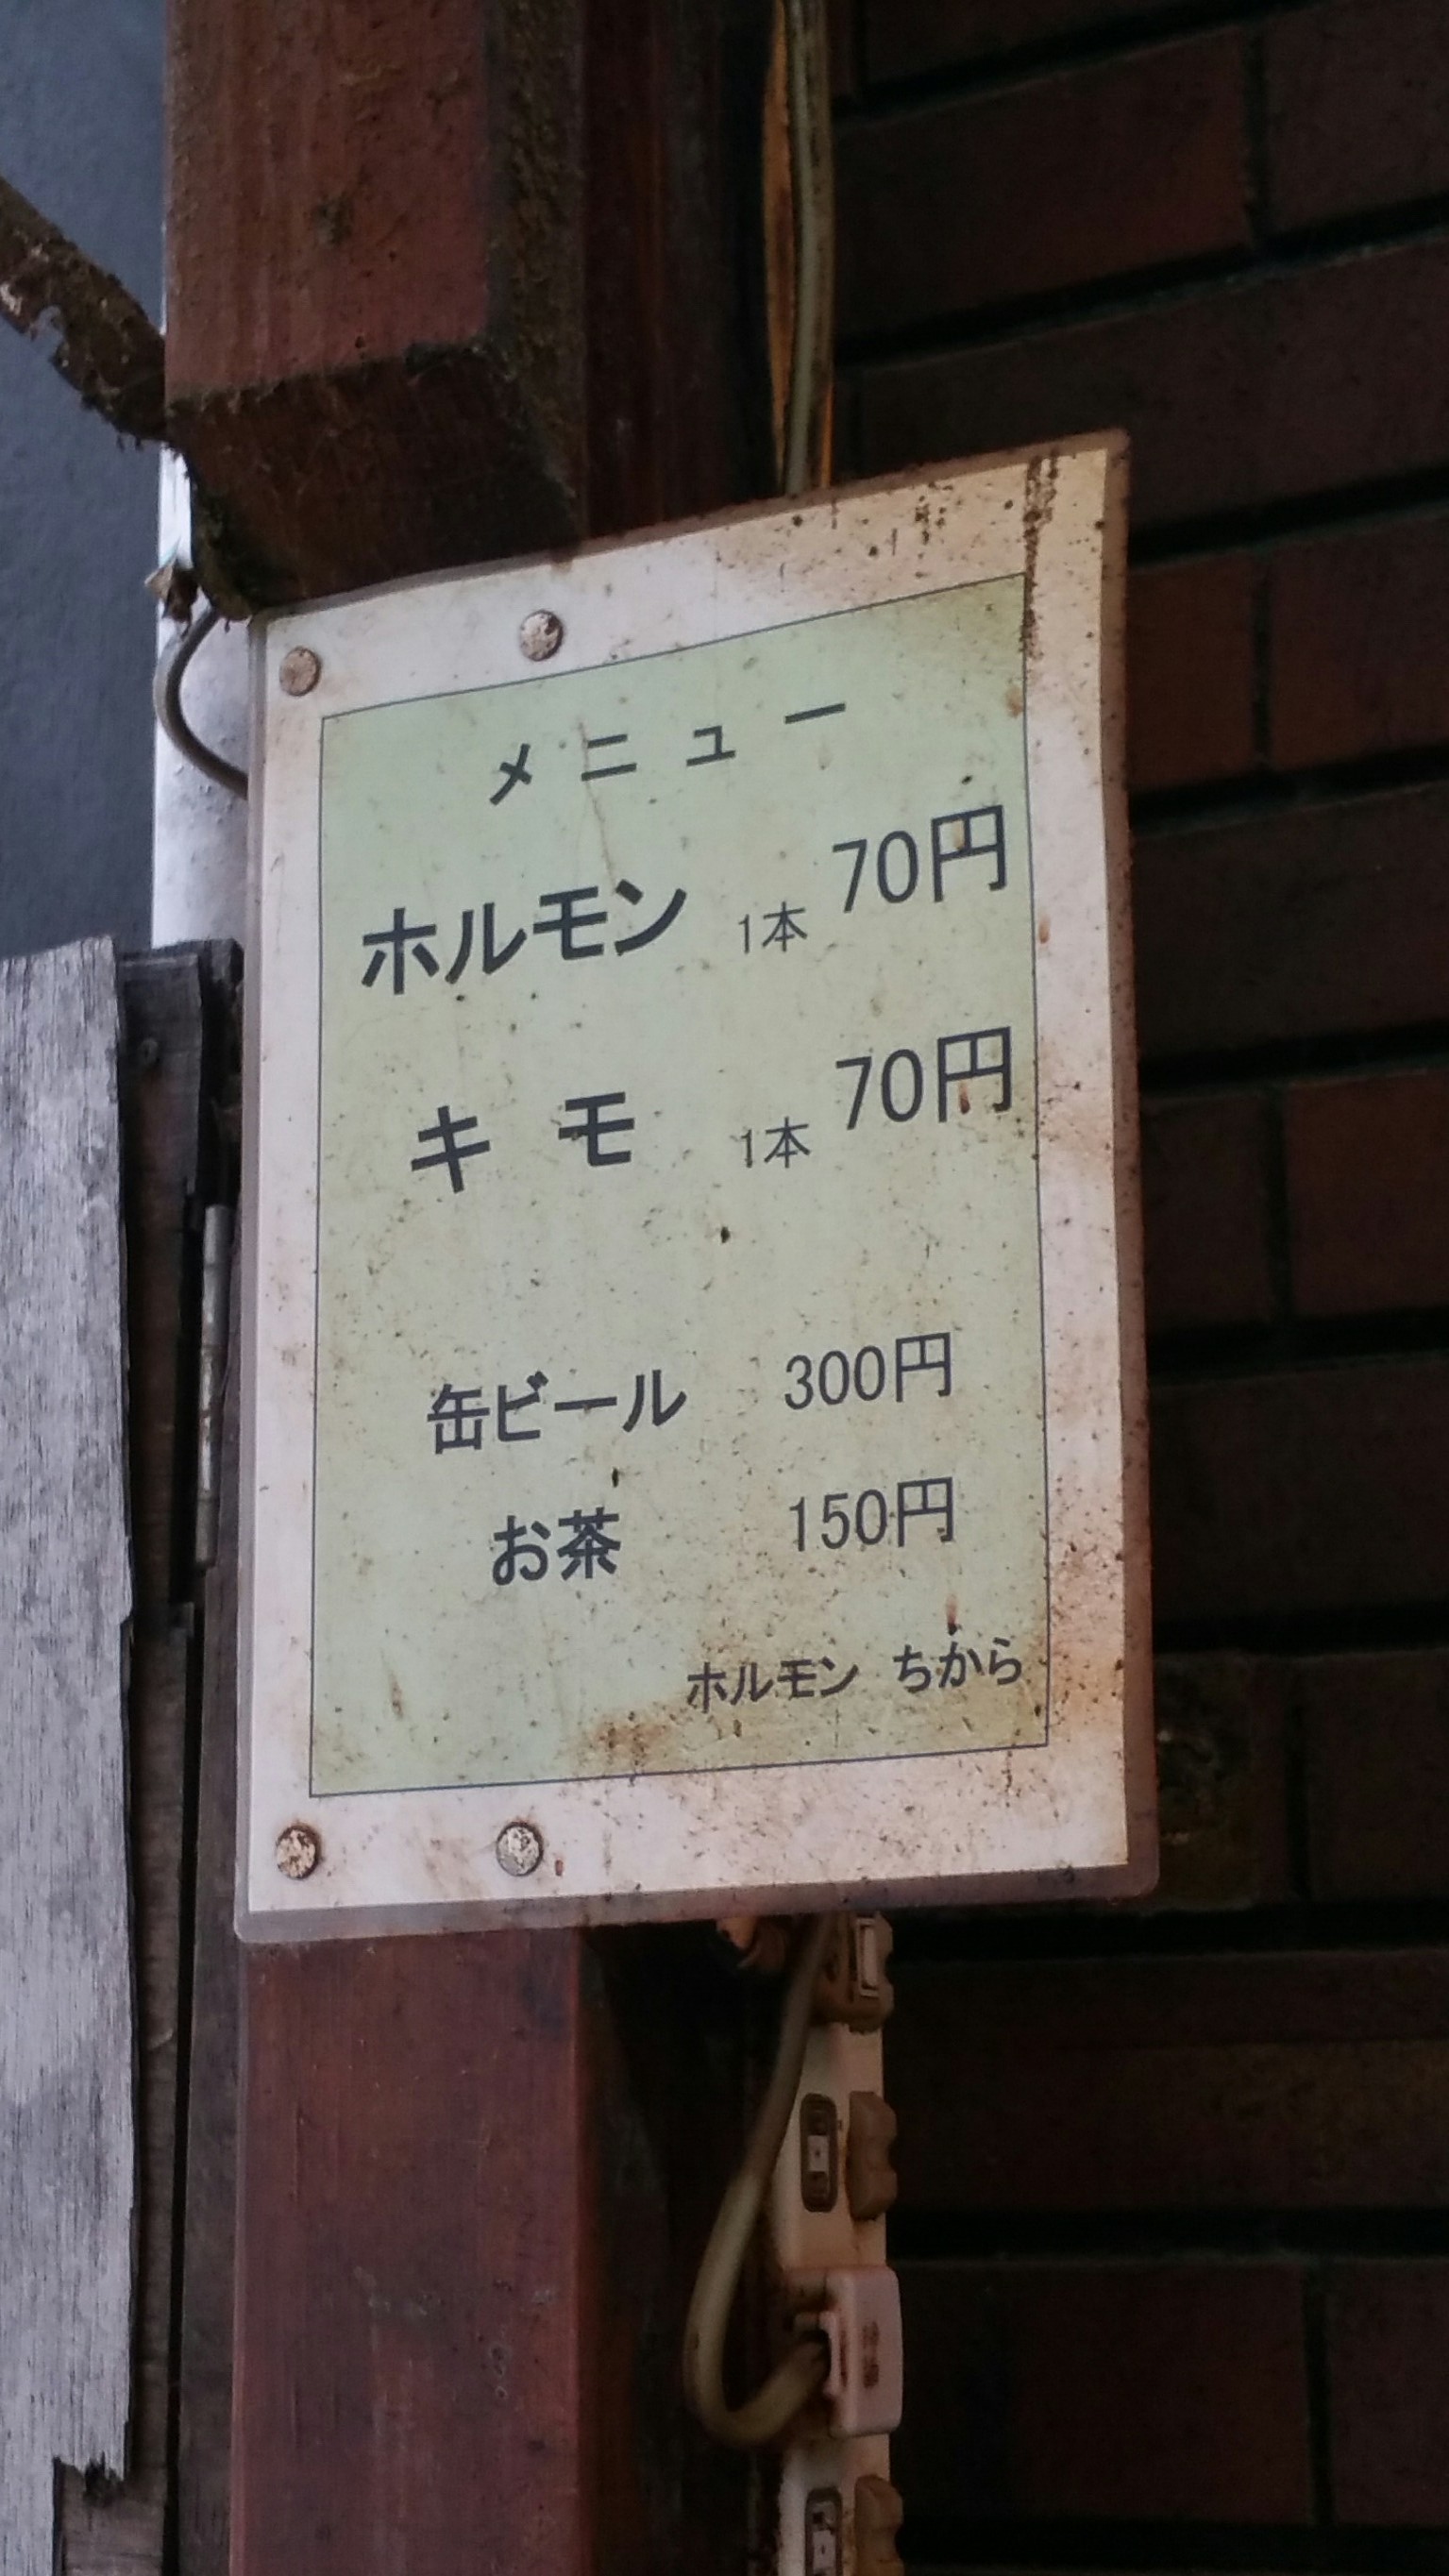 メニュー
ホルモン 1本 70円
キモ 1本 70円
缶ビール 300円
お茶 150円
ホルモン ちから